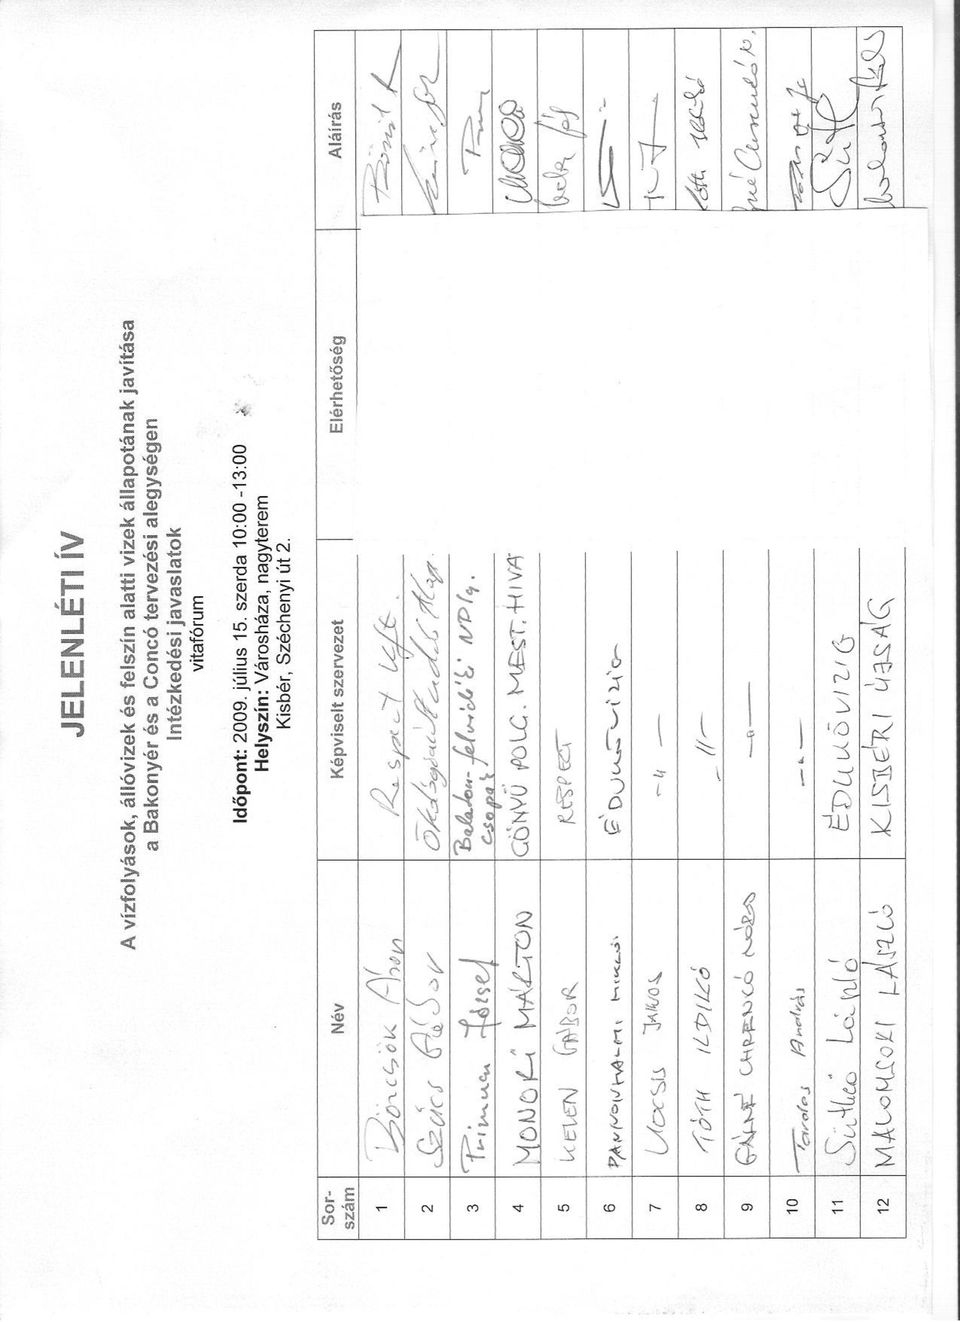 JELENLÉTI ÍV
A vízfolyások, állóvizek és felszín alatti vizek állapotának javítása
a Bakonyér és a Concó tervezési alegységen
Intézkedési javaslatok
vitafórum
Időpont: 2009. július 15. szerda 10:00 -13:00
Helyszín: Városháza, nagyterem
Kisbér, Széchenyi út 2.
Sor-szám Név Képviselt szervezet Elérhetőség Aláírás
1 Böröcsök Áron Respect Kft.
2 Szűcs Gábor
3 József Balaton-felvidéki NPIg.
4 MONORI MÁRTON GÖNYŰ POLG. MEST. HIVA
5 KELEN GÁBOR RESPECT
6 PANNONHALMI MIKLÓS ÉDUKÖVIZIG
7 KOCSIS JÁNOS —〃—
8 TÓTH ILDIKÓ —〃— Tóth Ildikó
9 GÁLNÉ NÓRA —〃—
10 Takács András —〃—
11 Sütheő László ÉDUKÖVIZIG
12 MALOMSOKI LÁSZLÓ KISBÉRI ÚJSÁG